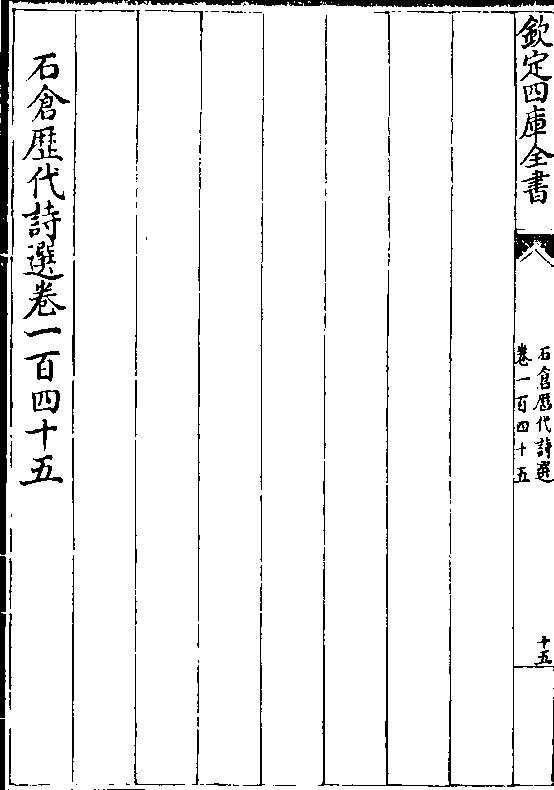 欽定四庫全書
石倉歷代詩選
卷一百四十五
十五
石倉歷代詩選卷一百四十五